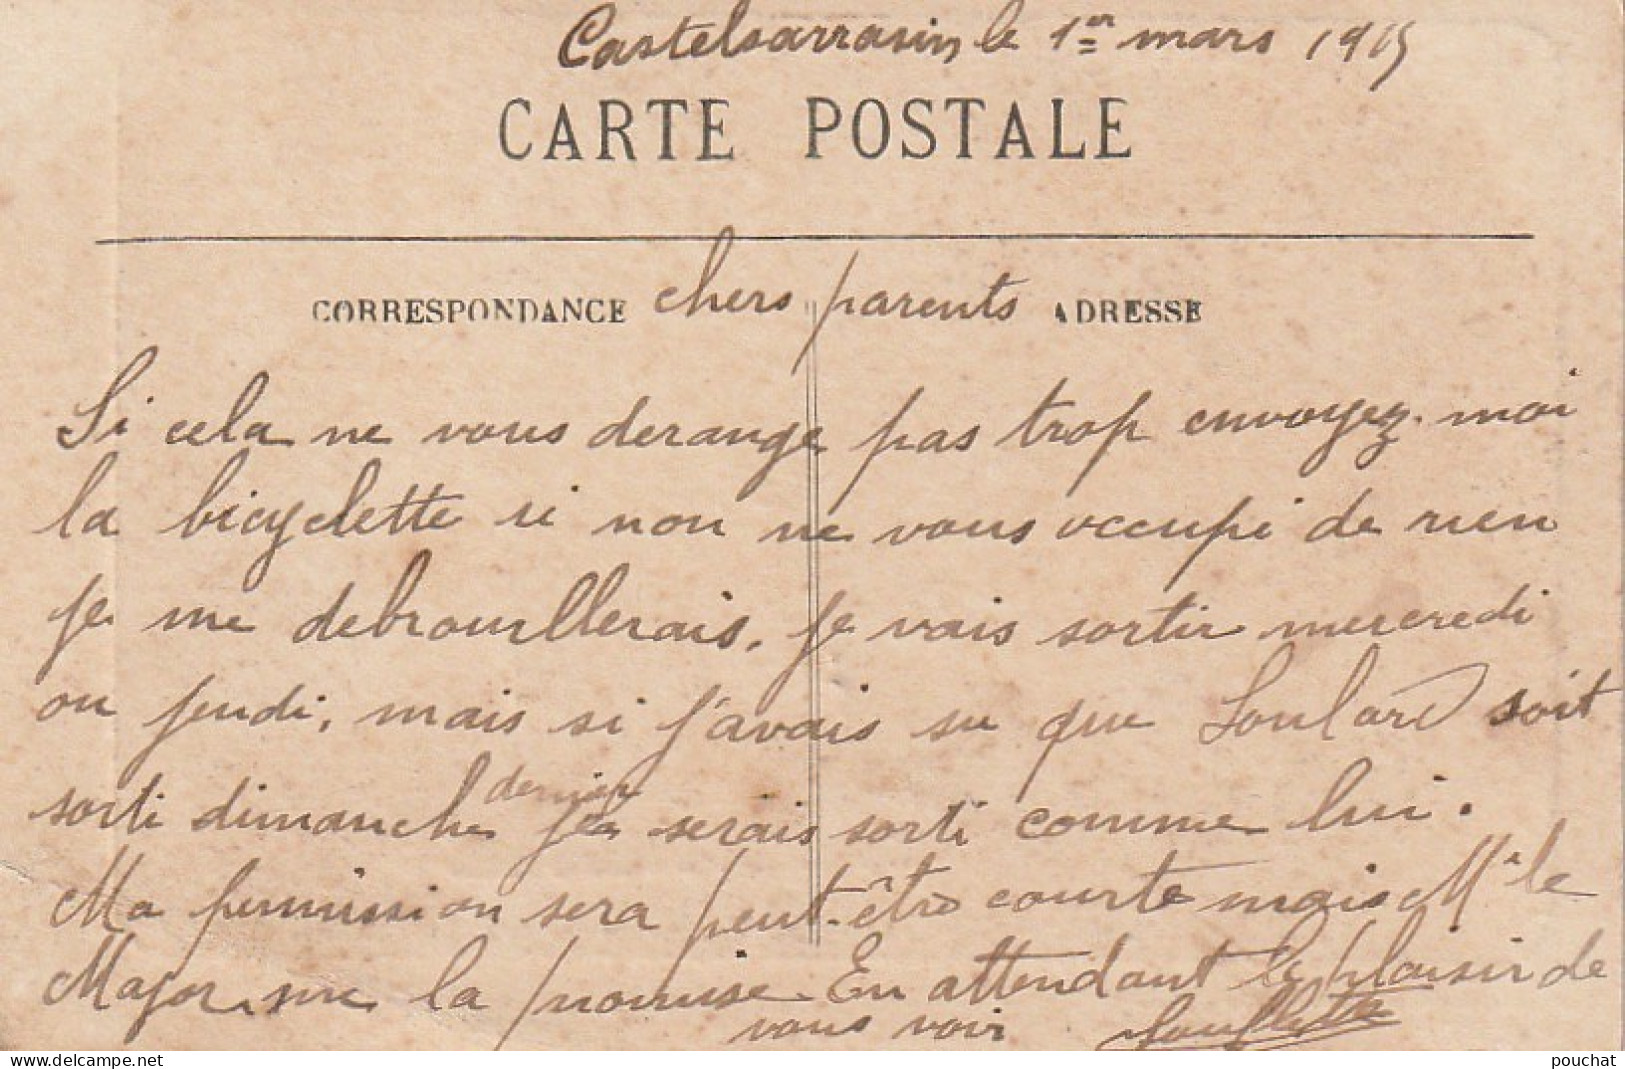 Castelsarrasin le 1er mars 1915
CARTE POSTALE
CORRESPONDANCE chers parents ADRESSE
Si cela ne vous derange pas trop envoyez-moi
la bicyclette si non ne vous occupé de rien
je me debrouillerais. je vais sortir mercredi
ou jeudi, mais si j'avais su que Soulard soit
sorti dimanche dernier je serais sorti comme lui.
Ma permission sera peut-être courte mais Mr le
Major me la promise. En attendant le plaisir de
vous voir
pouchat